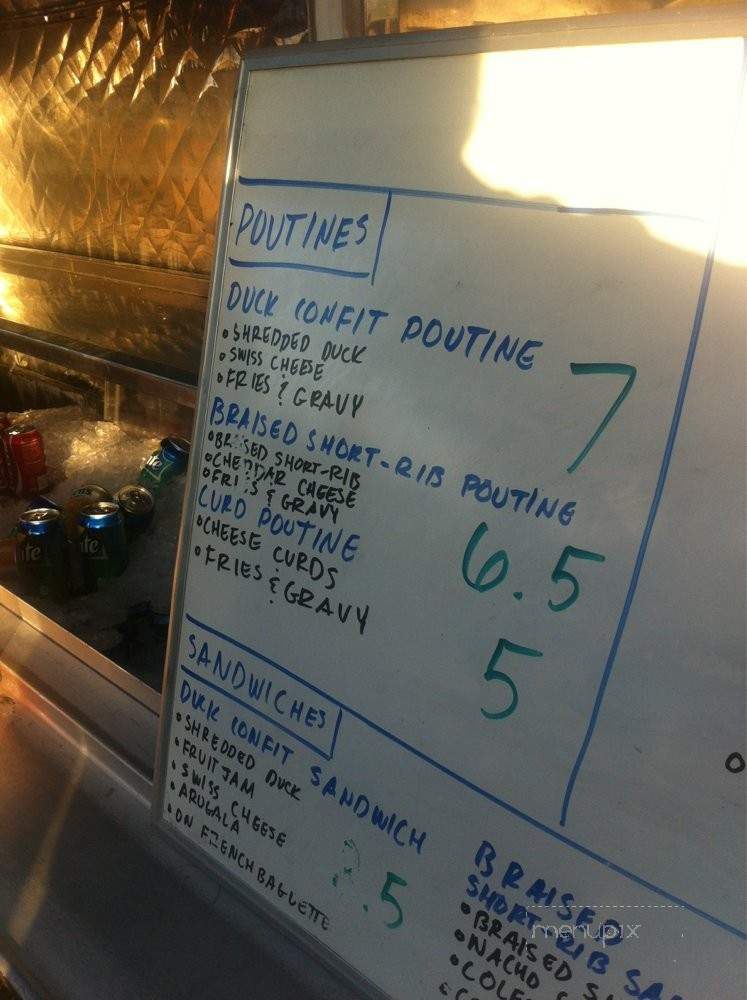 POUTINES
DUCK CONFIT POUTINE
• SHREDDED DUCK
• SWISS CHEESE
• FRIES & GRAVY
7
BRAISED SHORT-RIB POUTINE
• BRAISED SHORT-RIB
• CHEDDAR CHEESE
• FRIES & GRAVY
6.5
CURD POUTINE
• CHEESE CURDS
• FRIES & GRAVY
5
SANDWICHES
DUCK CONFIT SANDWICH
• SHREDDED DUCK
• FRUIT JAM
• SWISS CHEESE
• ARUGALA
• ON FRENCH BAGUETTE
.5
BRAISED
SHORT-RIB SA
• BRAISED S
• NACHO
• COLES
menupix